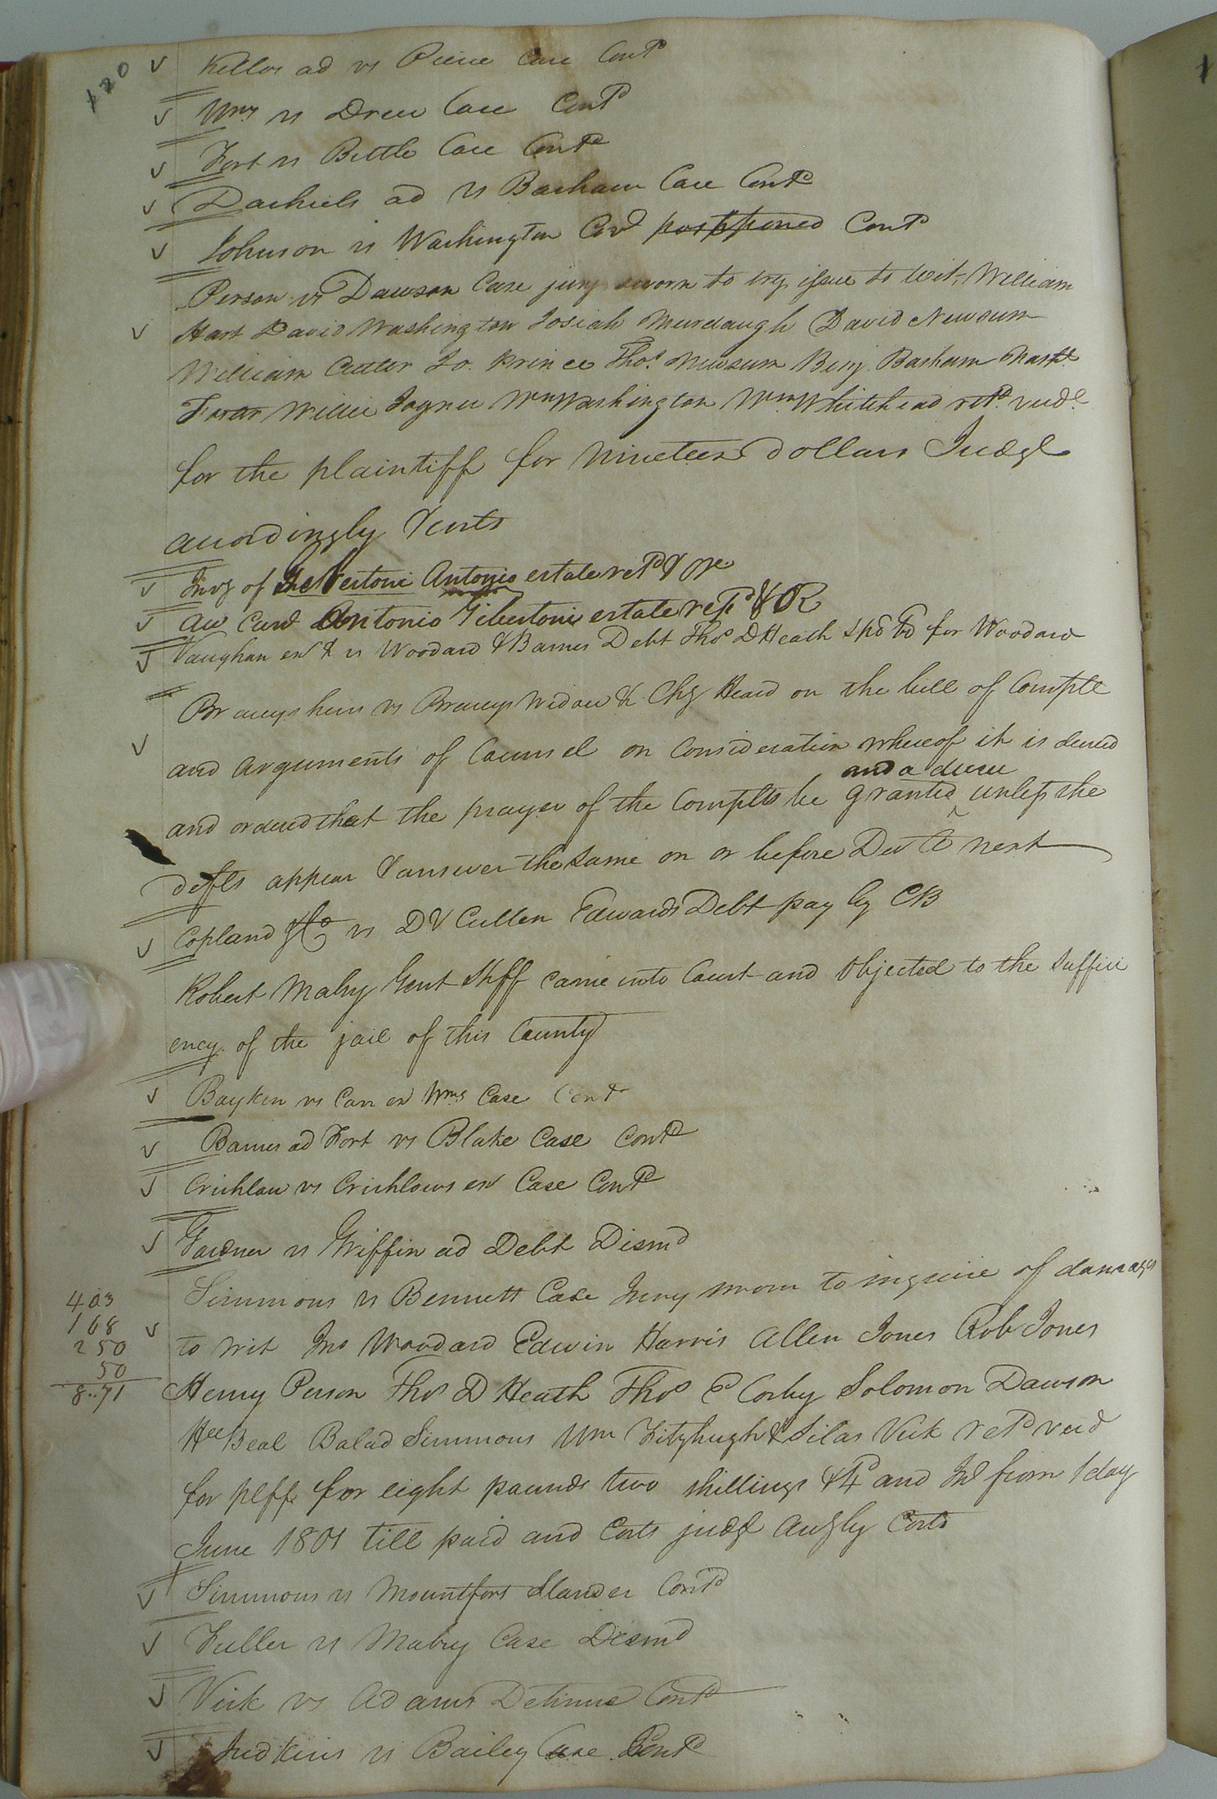 120
Kellos ad vs Pierce Case Contd
Wms vs Drew Case Contd
Fort vs Bittle Case Contd
Dashiels ad vs Barham Case Contd
Johnson vs Washington Covt postponed Contd
Person vs Dawson Case jury sworn to try issue to wit, William
Hart David Washington Josiah Murdaugh David Newsum
William Cutler Jo. Prince Thos. Newsum Benj Barham
Willie Joyner Wm Washington Wm Whitehead retd. verdt.
for the plaintiff for nineteen dollars Judgt
accordingly & costs
Invy of Gilbertoni Antonio estate retd & OR
Acc Curt Antonio Gibertoni estate retd & OR
Vaughan exr & vs Woodard & Barnes Debt Thos D Heath spd bd for Woodard
vs Widow & Chy Heard on the bill of Complt
and arguments of Counsel on Consideration whereof it is decreed
and a decree
and ordered that the prayer of the Complts be granted ^ unless the
Defts appear & answer the same on or before Dec Ct next
Copland & Co vs D & Cullen Edwards Debt pay by CB
Robert Mabry Gent Shff came into Court and Objected to the suffici
ency of the jail of this County
Boykin vs Carr exr Wms Case Contd
Barnes ad Fort vs Blake Case Contd
Crichlow vs Crichlows exr Case Contd
Gardner vs Griffin ad Debt Dismd
Simmons vs Bennett Case Jury sworn to inquire of damages
403
168
250
50
8..71
to wit Jno Woodard Edwin Harris Allen Jones Rob Jones
Henry Person Thos D Heath Thos E Corby Solomon Dawson
Beal Balad Simmons Wm Fitzhugh & Silas Vick retd verd
for plff for eight pounds two shillings & 4d and Int from 1 day
June 1801 till paid and Costs judgt accgly Costs
Simmons vs Mountfort Slander Contd
Fuller vs Mabry Case Dismd
Vick vs Adams Detinue Contd
Judkins vs Bailey Case Contd